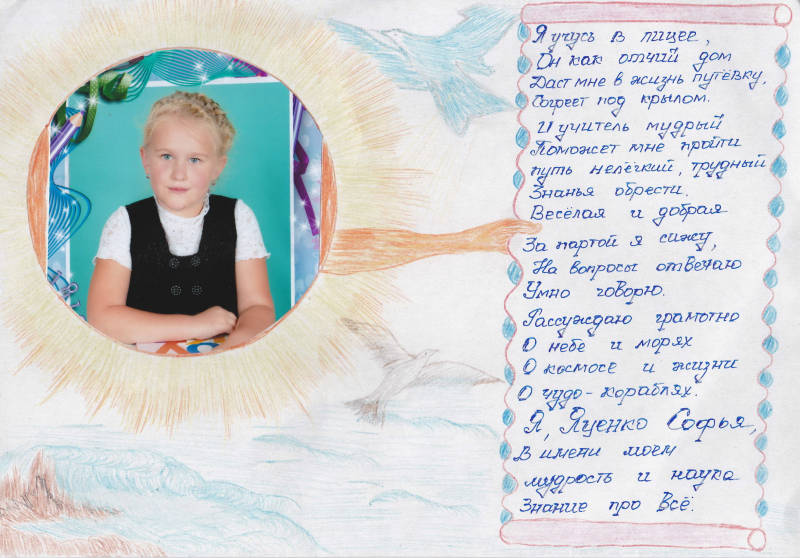 Я учусь в лицее,
Он как отчий дом
Даст мне в жизнь путёвку,
Согреет под крылом.
И учитель мудрый
Поможет мне пройти
путь нелёгкий, трудный
Знанья обрести.
Весёлая и добрая
За партой я сижу,
На вопросы отвечаю
Умно говорю.
Рассуждаю грамотно
О небе и морях
О космосе и жизни
О чудо-кораблях.
Я, Яценко Софья,
В имени моём
мудрость и наука
Знание про Всё.